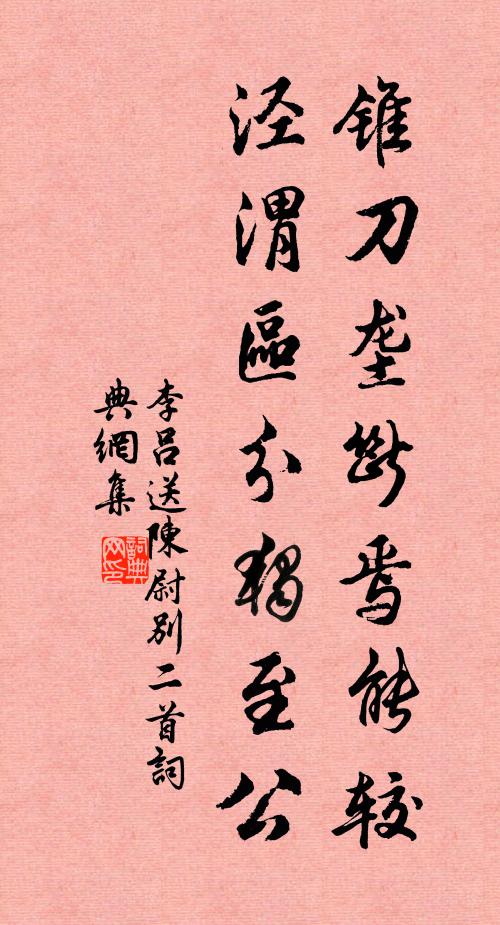 锥刀垄断焉能较
泾渭區分独至公
李吕送陳尉别二首詞
典網集
詞典
网印